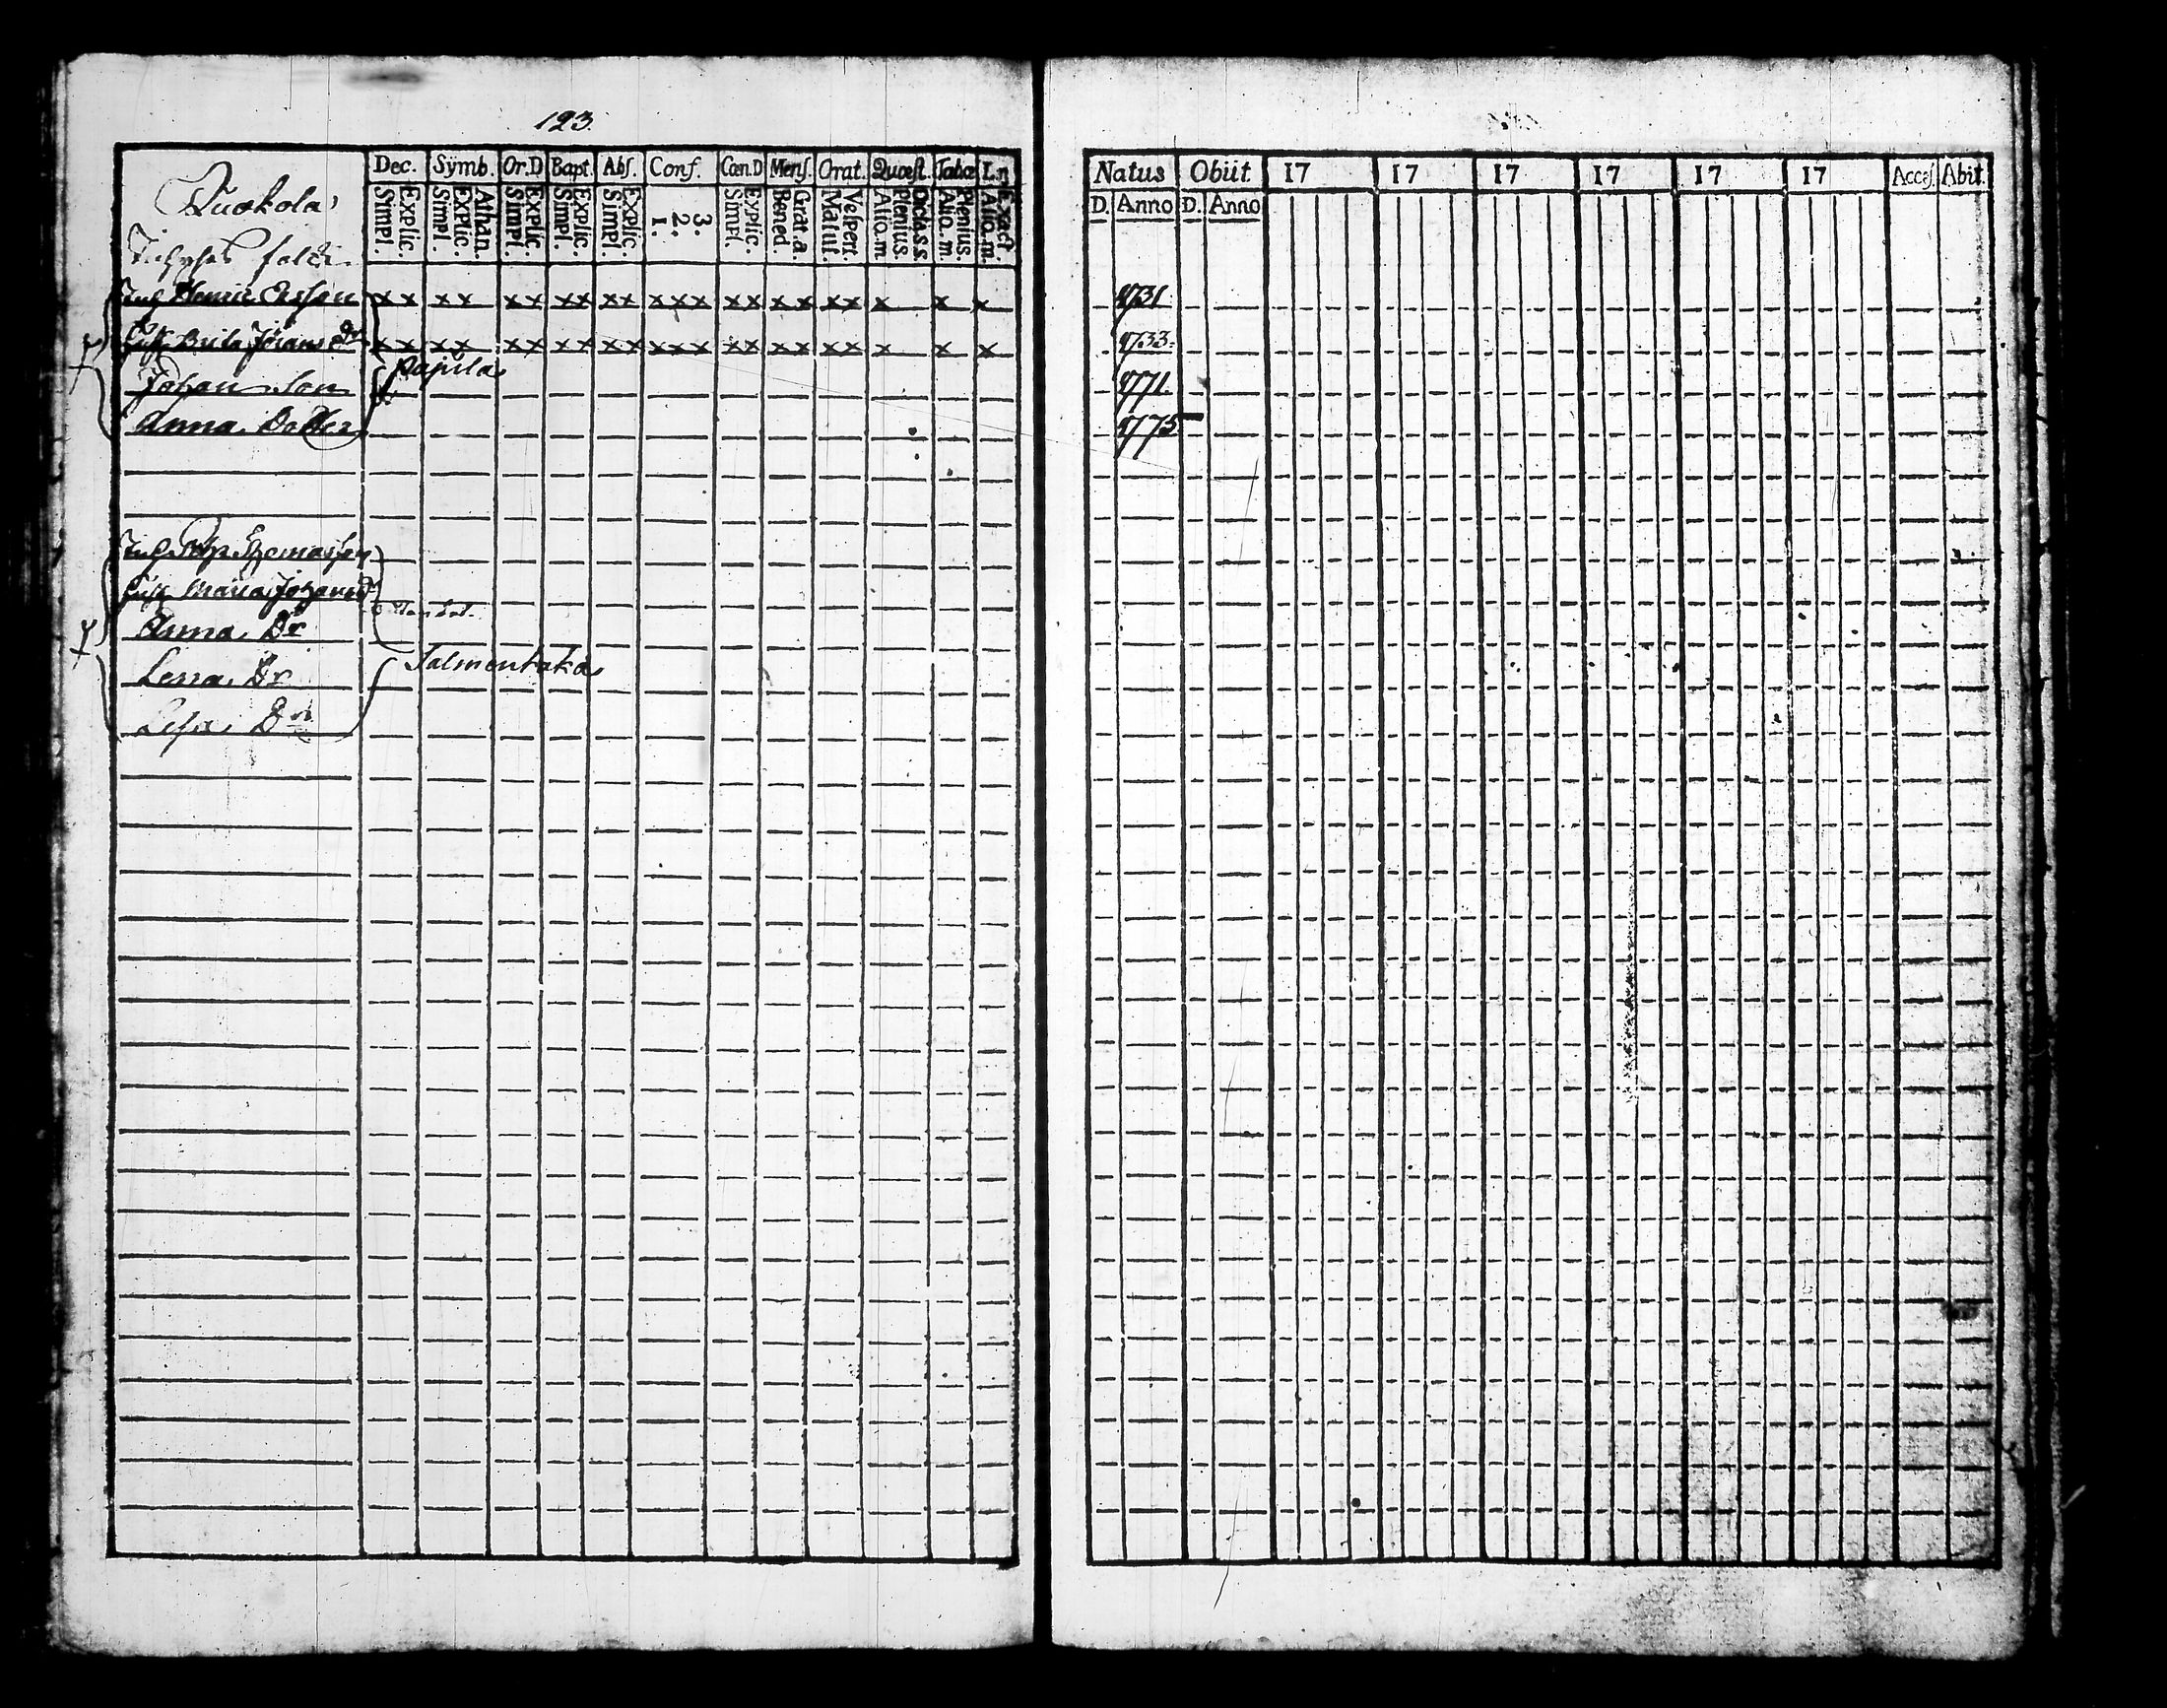 123.
Dec. Symb. Or.D Bapt. Abs. Conf. Cœn.D Mens. Orat. Quæst. Tabœ L.n
Explic. Simpl. Athan. Explic. Simpl. Explic. Simpl. Explic. Simpl. Explic. Simpl. 3. 2. 1. Explic. Simpl. Grat.a. Bened. Vespert. Matut. Dicta.s.s. Plenius. Alio.m Plenius. Alio.m. Exact. Alio.m.
Kuokola
Henric Ersson x x x x x x x x x x x x x x x x x x x x x x
Brita Jörans Dr x x x x x x x x x x x x x x x x x x x x x x
Pajula
Johan Son
Anna Dotter
Maria Johansd
Anna Dr
Salmenkaka
Lena Dr
Lisa Dr
Natus Obiit 17 17 17 17 17 17 Acces. Abit.
D. Anno D. Anno
1731.
1733.
1771.
1775